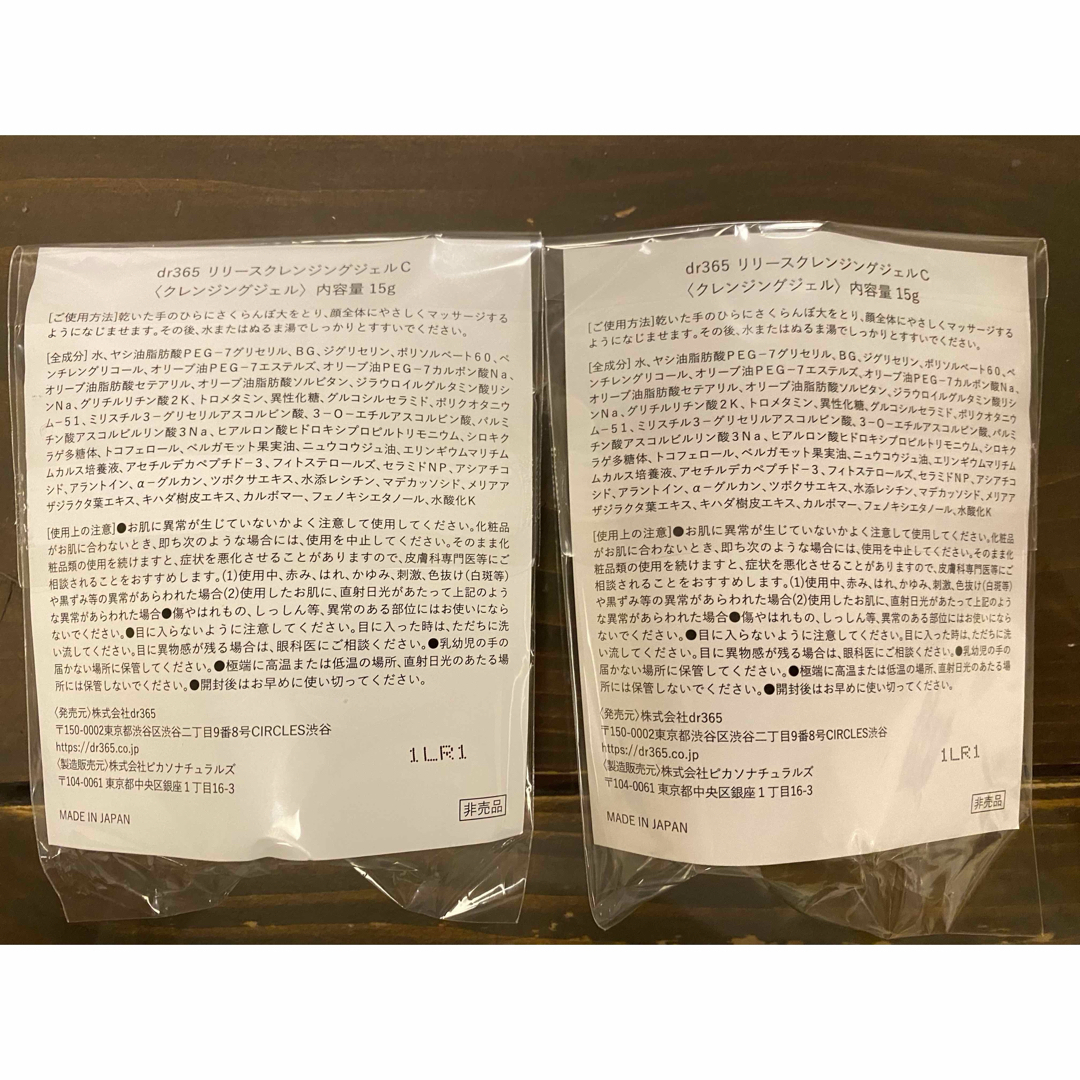 dr365 リリースクレンジングジェルC
〈クレンジングジェル〉内容量 15g
[ご使用方法]乾いた手のひらにさくらんぼ大をとり、顔全体にやさしくマッサージする
ようになじませます。その後、水またはぬるま湯でしっかりとすすいでください。
[全成分] 水、ヤシ油脂肪酸PEG−7グリセリル、BG、ジグリセリン、ポリソルベート60、ペ
ンチレングリコール、オリーブ油PEG−7エステルズ、オリーブ油PEG−7カルボン酸Na、
オリーブ油脂肪酸セテアリル、オリーブ油脂肪酸ソルビタン、ジラウロイルグルタミン酸リシ
ンNa、グリチルリチン酸2K、トロメタミン、異性化糖、グルコシルセラミド、ポリクオタニウ
ム−51、ミリスチル3−グリセリルアスコルビン酸、3−O−エチルアスコルビン酸、パルミ
チン酸アスコルビルリン酸3Na、ヒアルロン酸ヒドロキシプロピルトリモニウム、シロキク
ラゲ多糖体、トコフェロール、ベルガモット果実油、ニュウコウジュ油、エリンギウムマリチム
ムカルス培養液、アセチルデカペプチド−3、フィトステロールズ、セラミドNP、アシアチコ
シド、アラントイン、α−グルカン、ツボクサエキス、水添レシチン、マデカッソシド、メリアア
ザジラクタ葉エキス、キハダ樹皮エキス、カルボマー、フェノキシエタノール、水酸化K
[使用上の注意]●お肌に異常が生じていないかよく注意して使用してください。化粧品
がお肌に合わないとき、即ち次のような場合には、使用を中止してください。そのまま化
粧品類の使用を続けますと、症状を悪化させることがありますので、皮膚科専門医等にご
相談されることをおすすめします。(1)使用中、赤み、はれ、かゆみ、刺激、色抜け(白斑等)
や黒ずみ等の異常があらわれた場合(2)使用したお肌に、直射日光があたって上記のよう
な異常があらわれた場合●傷やはれもの、しっしん等、異常のある部位にはお使いになら
ないでください。●目に入らないように注意してください。目に入った時は、ただちに洗
い流してください。目に異物感が残る場合は、眼科医にご相談ください。●乳幼児の手の
届かない場所に保管してください。●極端に高温または低温の場所、直射日光のあたる場
所には保管しないでください。●開封後はお早めに使い切ってください。
〈発売元〉株式会社dr365
〒150-0002東京都渋谷区渋谷二丁目9番8号CIRCLES渋谷
https://dr365.co.jp
〈製造販売元〉株式会社ピカソナチュラルズ
〒104-0061 東京都中央区銀座1丁目16-3
1LR1
非売品
MADE IN JAPAN
dr365 リリースクレンジングジェルC
〈クレンジングジェル〉内容量 15g
[ご使用方法]乾いた手のひらにさくらんぼ大をとり、顔全体にやさしくマッサージする
ようになじませます。その後、水またはぬるま湯でしっかりとすすいでください。
[全成分] 水、ヤシ油脂肪酸PEG−7グリセリル、BG、ジグリセリン、ポリソルベート60、ペ
ンチレングリコール、オリーブ油PEG−7エステルズ、オリーブ油PEG−7カルボン酸Na、
オリーブ油脂肪酸セテアリル、オリーブ油脂肪酸ソルビタン、ジラウロイルグルタミン酸リシ
ンNa、グリチルリチン酸2K、トロメタミン、異性化糖、グルコシルセラミド、ポリクオタニウ
ム−51、ミリスチル3−グリセリルアスコルビン酸、3−O−エチルアスコルビン酸、パルミ
チン酸アスコルビルリン酸3Na、ヒアルロン酸ヒドロキシプロピルトリモニウム、シロキク
ラゲ多糖体、トコフェロール、ベルガモット果実油、ニュウコウジュ油、エリンギウムマリチム
ムカルス培養液、アセチルデカペプチド−3、フィトステロールズ、セラミドNP、アシアチコ
シド、アラントイン、α−グルカン、ツボクサエキス、水添レシチン、マデカッソシド、メリアア
ザジラクタ葉エキス、キハダ樹皮エキス、カルボマー、フェノキシエタノール、水酸化K
[使用上の注意]●お肌に異常が生じていないかよく注意して使用してください。化粧品
がお肌に合わないとき、即ち次のような場合には、使用を中止してください。そのまま化
粧品類の使用を続けますと、症状を悪化させることがありますので、皮膚科専門医等にご
相談されることをおすすめします。(1)使用中、赤み、はれ、かゆみ、刺激、色抜け(白斑等)
や黒ずみ等の異常があらわれた場合(2)使用したお肌に、直射日光があたって上記のよう
な異常があらわれた場合●傷やはれもの、しっしん等、異常のある部位にはお使いになら
ないでください。●目に入らないように注意してください。目に入った時は、ただちに洗
い流してください。目に異物感が残る場合は、眼科医にご相談ください。●乳幼児の手の
届かない場所に保管してください。●極端に高温または低温の場所、直射日光のあたる場
所には保管しないでください。●開封後はお早めに使い切ってください。
〈発売元〉株式会社dr365
〒150-0002東京都渋谷区渋谷二丁目9番8号CIRCLES渋谷
https://dr365.co.jp
〈製造販売元〉株式会社ピカソナチュラルズ
〒104-0061 東京都中央区銀座1丁目16-3
1LR1
非売品
MADE IN JAPAN